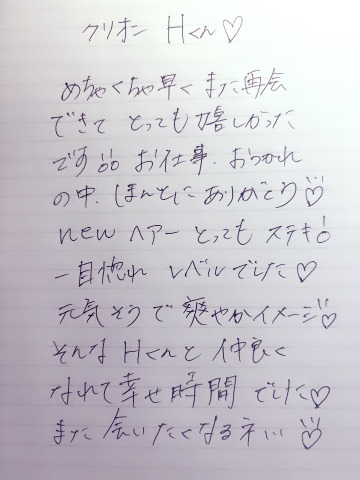 クリオン Hくん♡
めちゃくちゃ早く また再会
できて とっても 嬉しかった
です!! お仕事. おつかれ
の中. ほんとにありがとう♡
new ヘアー とっても ステキ!
一目惚れ レベルでした♡
元気そうで 爽やかイメージ♡
そんな Hくんと 仲良く
なれて 幸せ時間 でした♡
また 会いたくなるネ… ♡